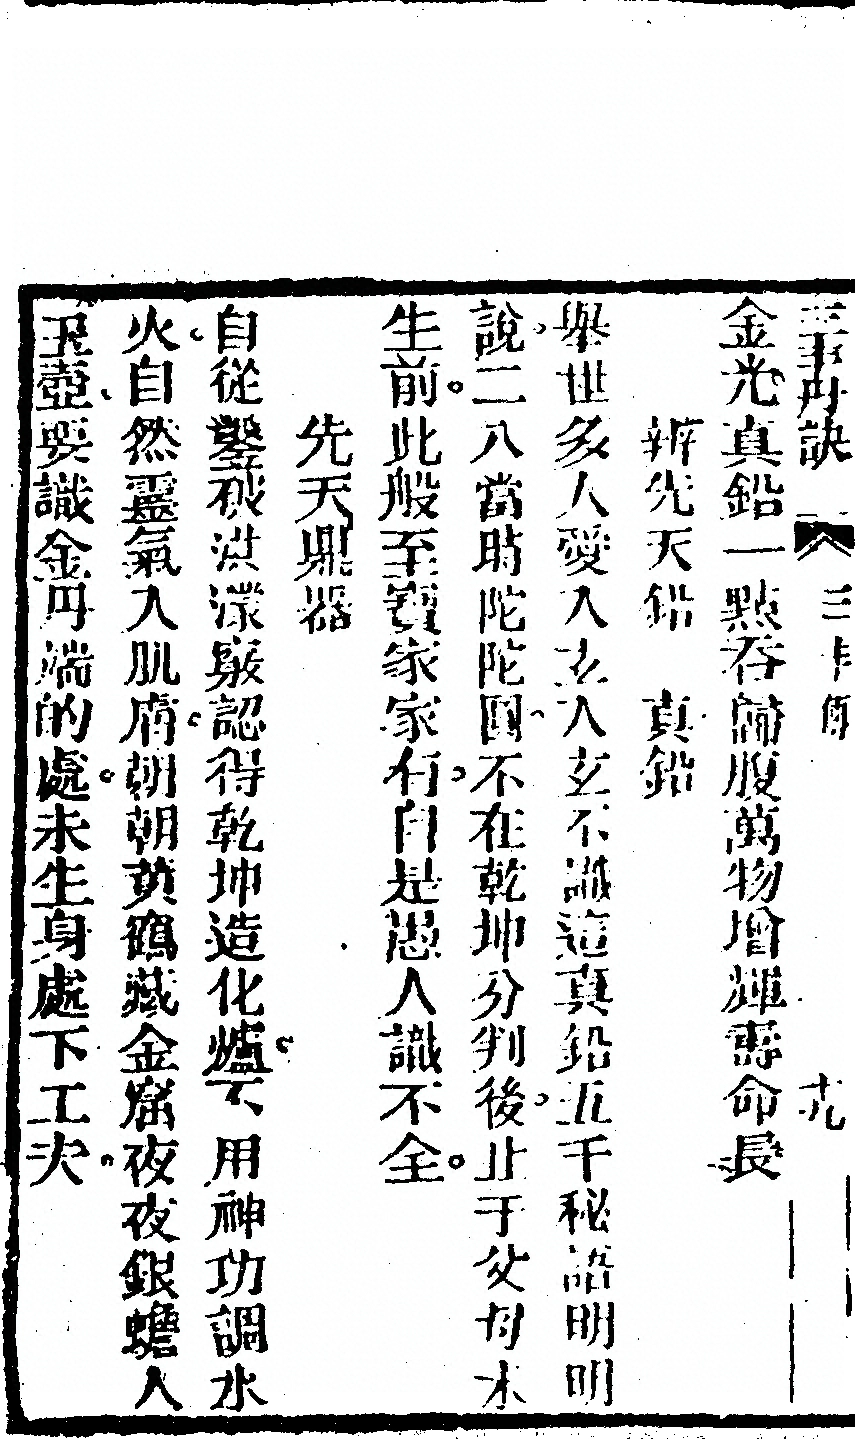 三丰丹訣 三丰傳 十九
金光真鉛一點吞歸腹萬物增輝壽命長
辨先天鉛　真鉛
舉世多人愛入玄入玄不識這真鉛五千秘語明明
說。二八當時陀陀圓。不在乾坤分判後。止于父母未
生前。此般至寶家家有。自是愚人識不全。
先天鼎器
自從鑿破洪濛竅認得乾坤造化爐。不用神功調水
火。自然靈氣入肌膚。朝朝黃鶴藏金窟夜夜銀蟾入
玉壺。要識金丹端的處。未生身處下工夫。